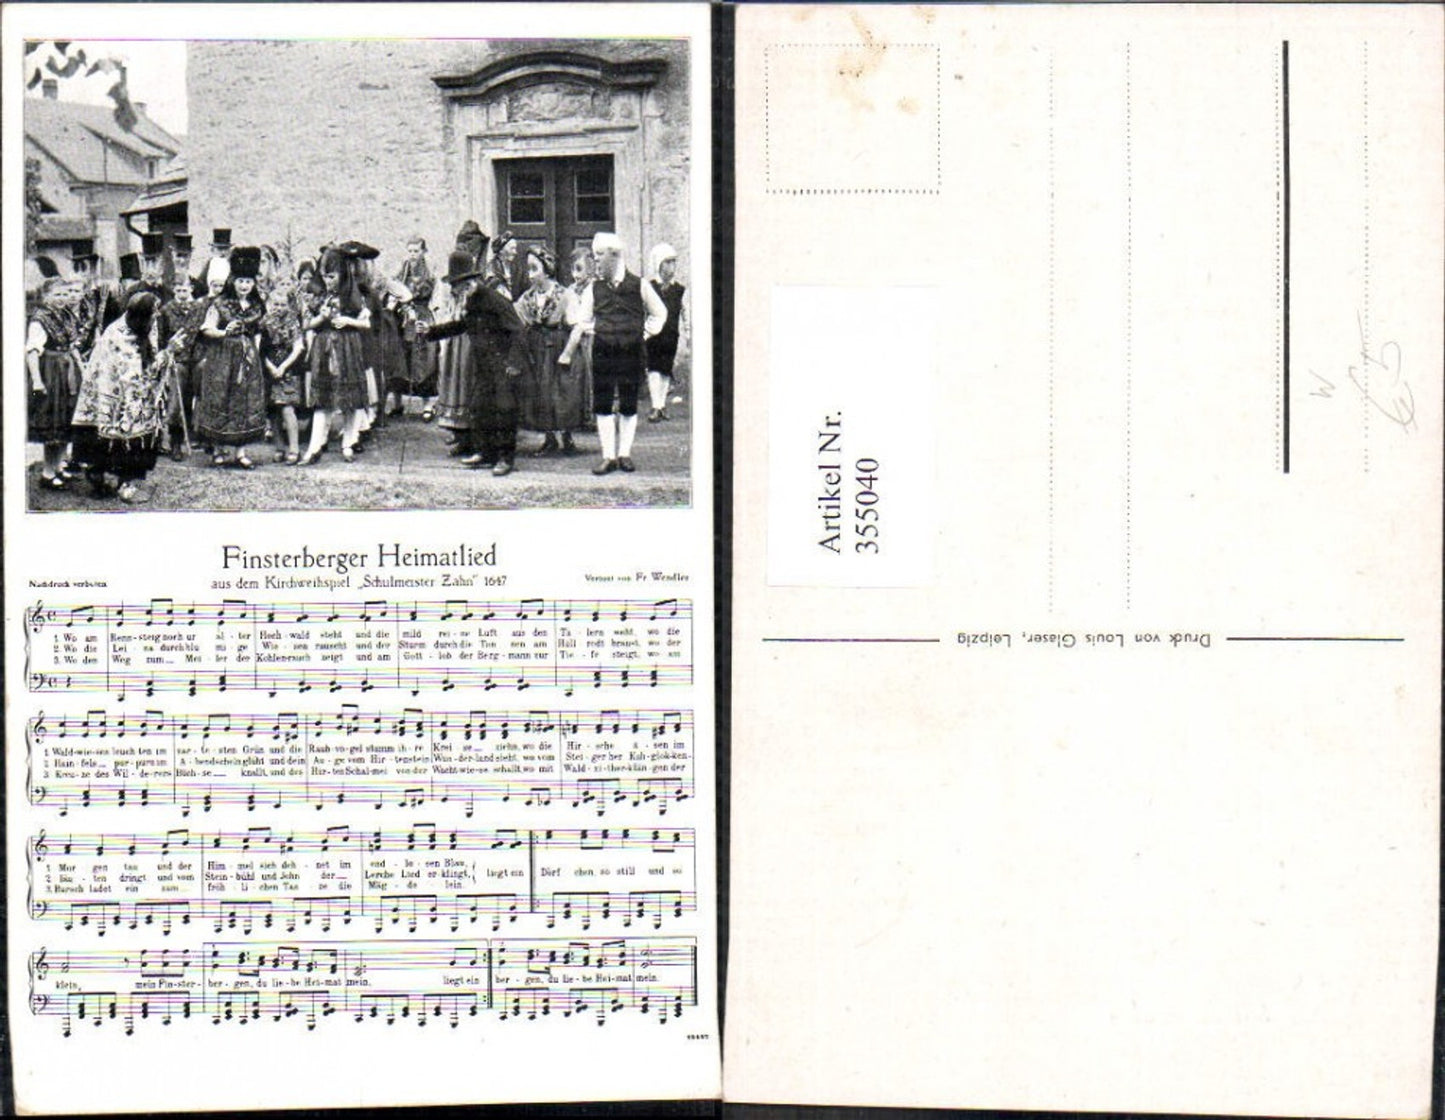 Finsterberger Heimatlied
aus dem Kirchweihspiel „Schulmeister Zahn" 1647
Nachdruck verboten
Vertont von Fr Wendler
1. Wo am Renn-steig noch ur al-ter Hoch-wald steht und die mild rei-ne Luft aus den Tä-lern weht, wo die
2. Wo die Lei-na durch blu mi-ge Wie-sen rauscht und der Sturm durch die Tan nen am braust, wo der
3. Wo den Weg zum Mei-ler der Kohlenrauch zeigt und am Gott-lob der Berg-mann zur Tie-fe steigt, wo am
1. Wald-wie-sen leuch ten im zar-te-sten Grün und die Raub-vo-gel stumm ih-re Krei-se ziehn, wo die Hir-sche ä-sen im
2. Hain-fels pur-purn im A-bendschein glüht und dein Au-ge vom Hir-tenstein Wun-der-land sieht, wo vom Stei-ger her Kuh-glok-ken-
3. Kreu-ze des Wil-de-rers Büch-se knallt, und des Hir-ten Schal-mei von der Wacht-wie-se schallt, wo mit Wald-zi-ther-klän-gen der
1. Mor-gen tau und der Him-mel sich deh-net im end-lo-sen Blau,
2. läu-ten dringt und vom Stein-bühl und Jehn der Lerche Lied er-klingt, liegt ein Dörf chen so still und so
3. Bursch ladet ein zum fröh-li-chen Tan-ze die Mäg-de-lein.
klein, mein Fin-ster-ber-gen, du lie-be Hei-mat mein. liegt ein ber-gen, du lie-be Hei-mat mein.
Artikel Nr.
355040
Druck von Louis Glaser, Leipzig